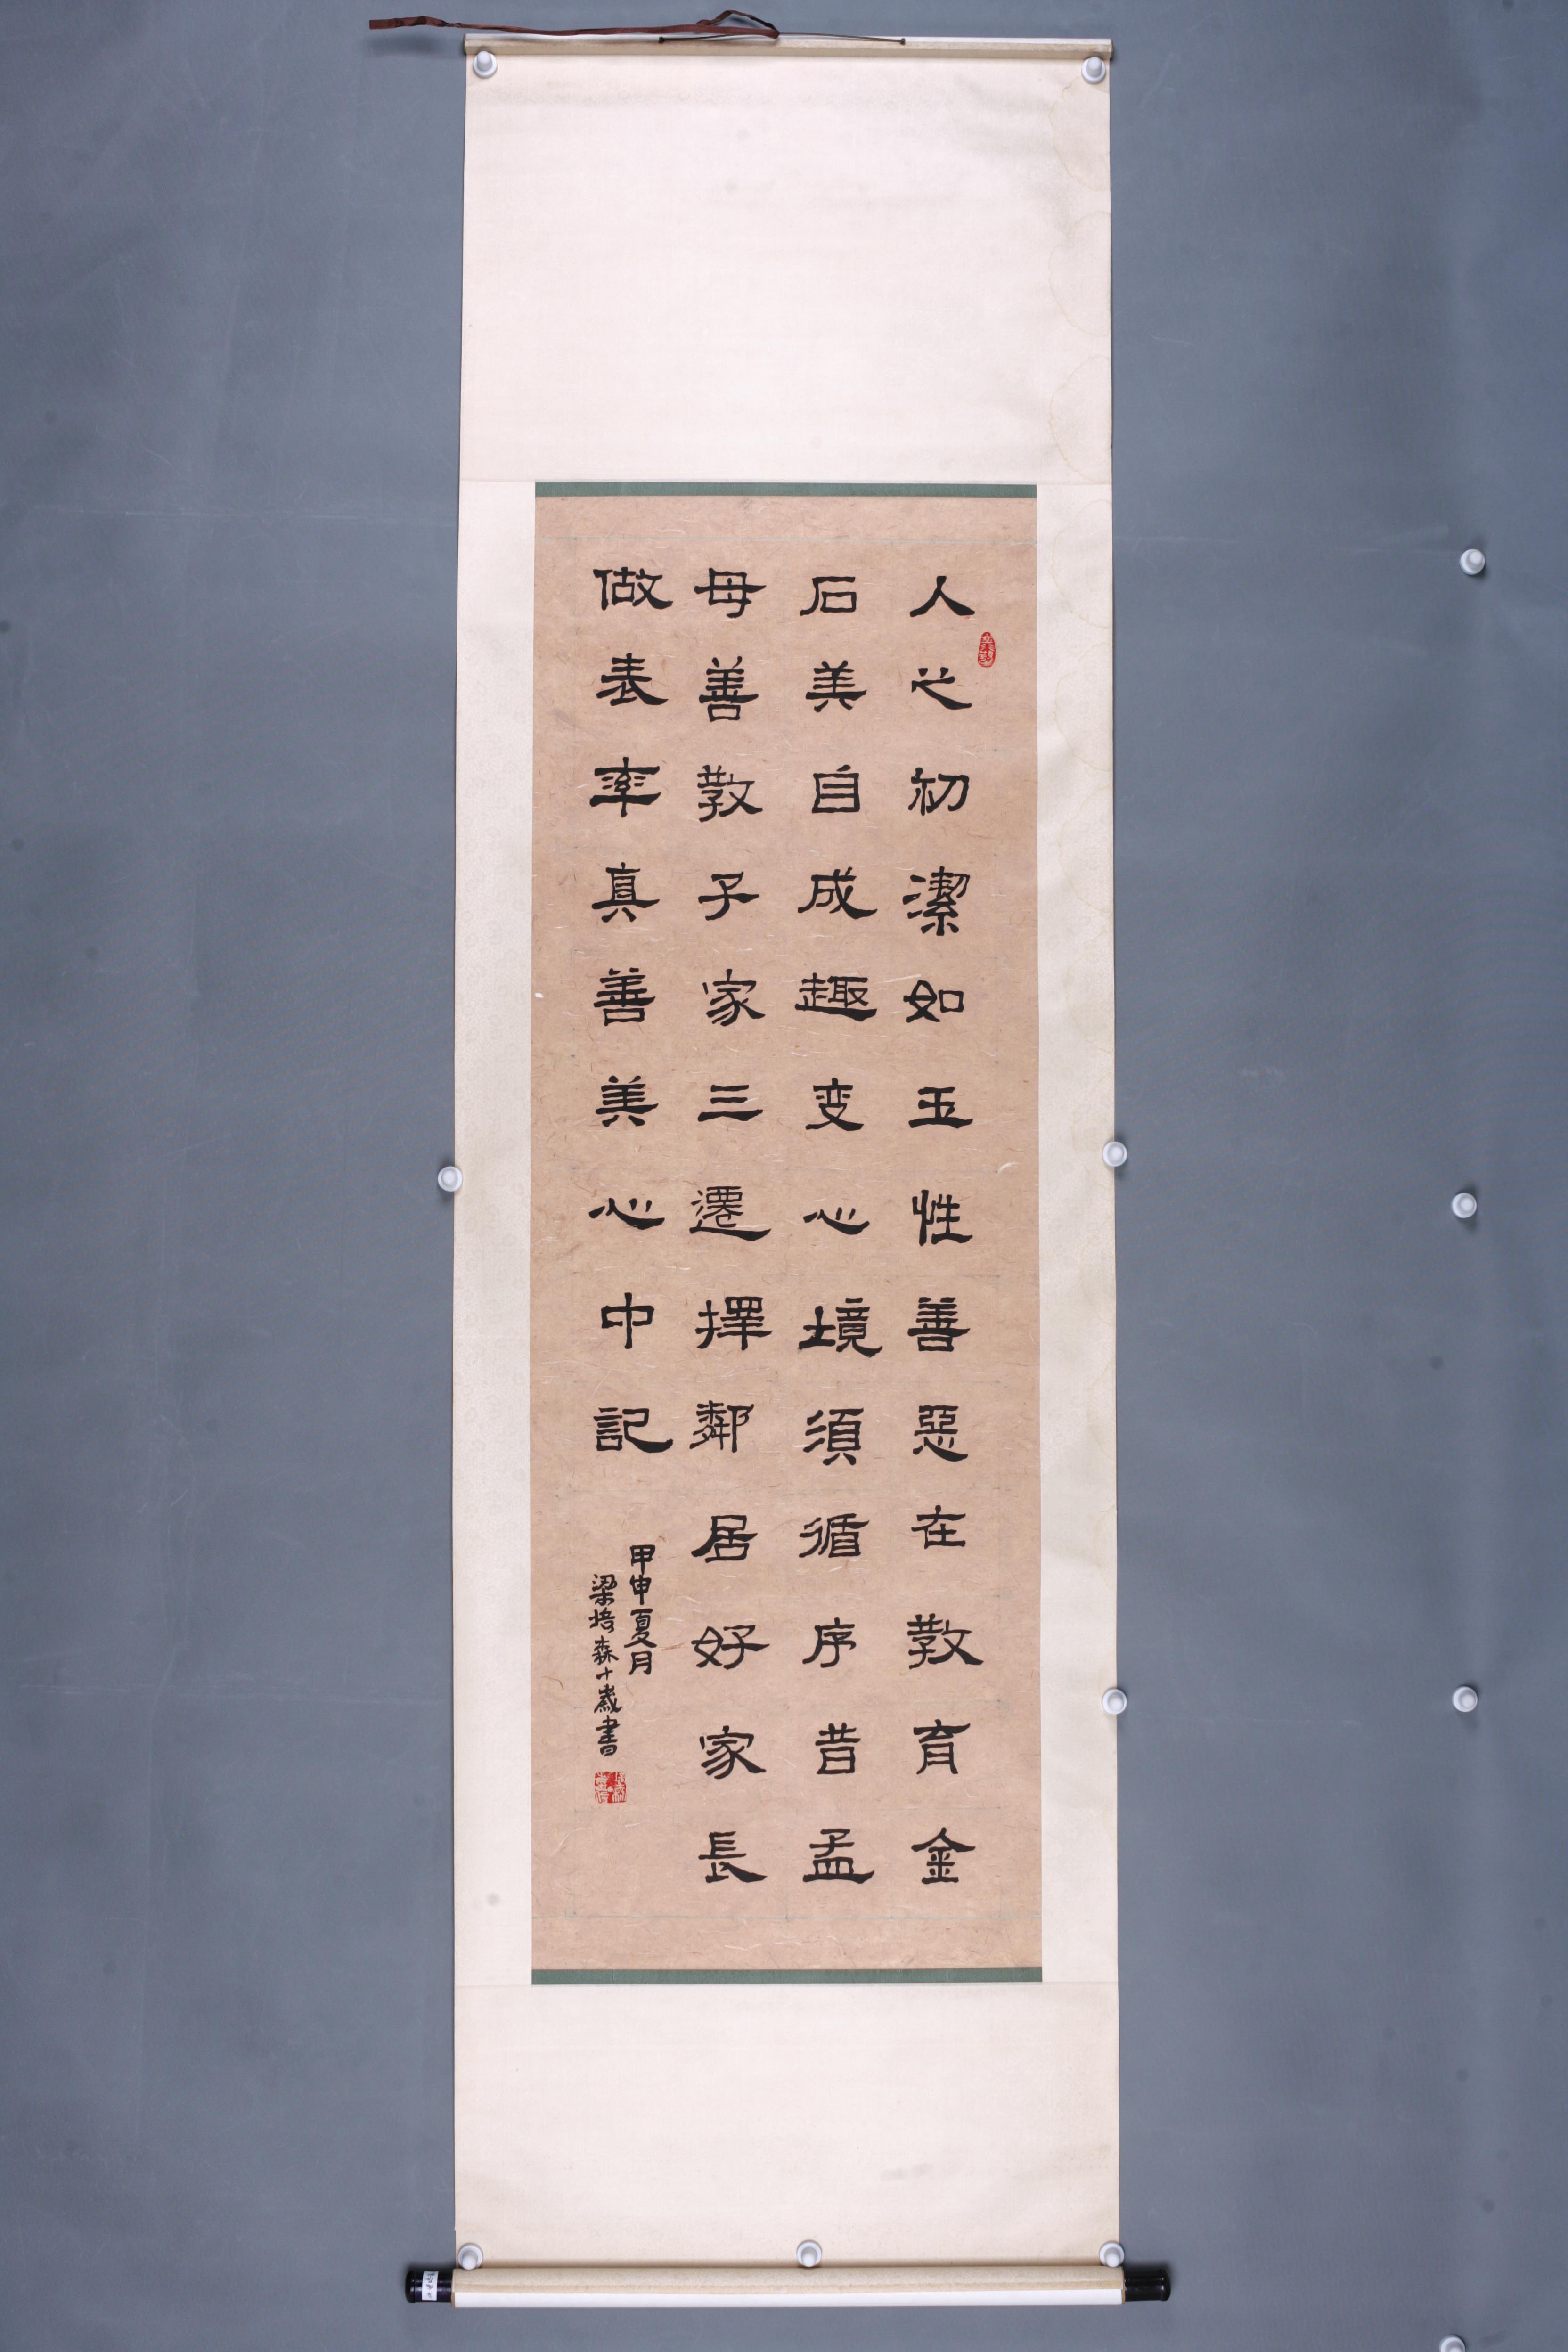 人之初潔如玉性善惡在教育金
石美自成趣变心境須循序昔孟
母善教子家三遷擇鄰居好家長
做表率真善美心中記
甲申夏月
梁培森十歲書